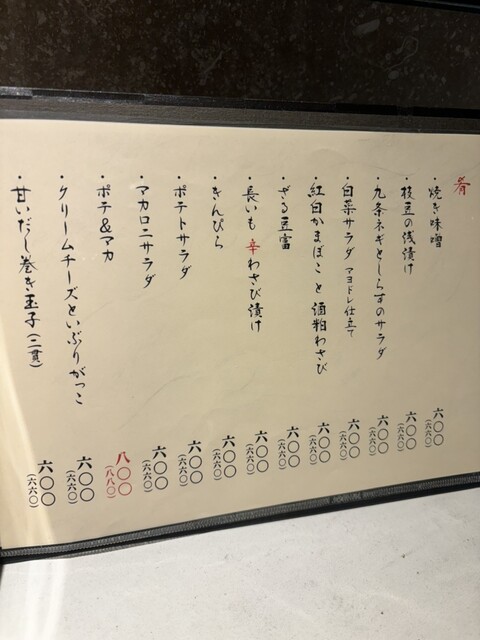 肴
・焼き味噌 六〇〇(六六〇)
・枝豆の浅漬け 六〇〇(六六〇)
・九条ネギとしらすのサラダ 六〇〇(六六〇)
・白菜サラダ マヨドレ仕立て 六〇〇(六六〇)
・紅白かまぼこと酒粕わさび 六〇〇(六六〇)
・ざる豆富 六〇〇(六六〇)
・長いも辛わさび漬け 六〇〇(六六〇)
・きんぴら 六〇〇(六六〇)
・ポテトサラダ 六〇〇(六六〇)
・マカロニサラダ 六〇〇(六六〇)
・ポテ&マカ 八〇〇(八八〇)
・クリームチーズといぶりがっこ 六〇〇(六六〇)
・甘いだし巻き玉子(二貫) 六〇〇(六六〇)